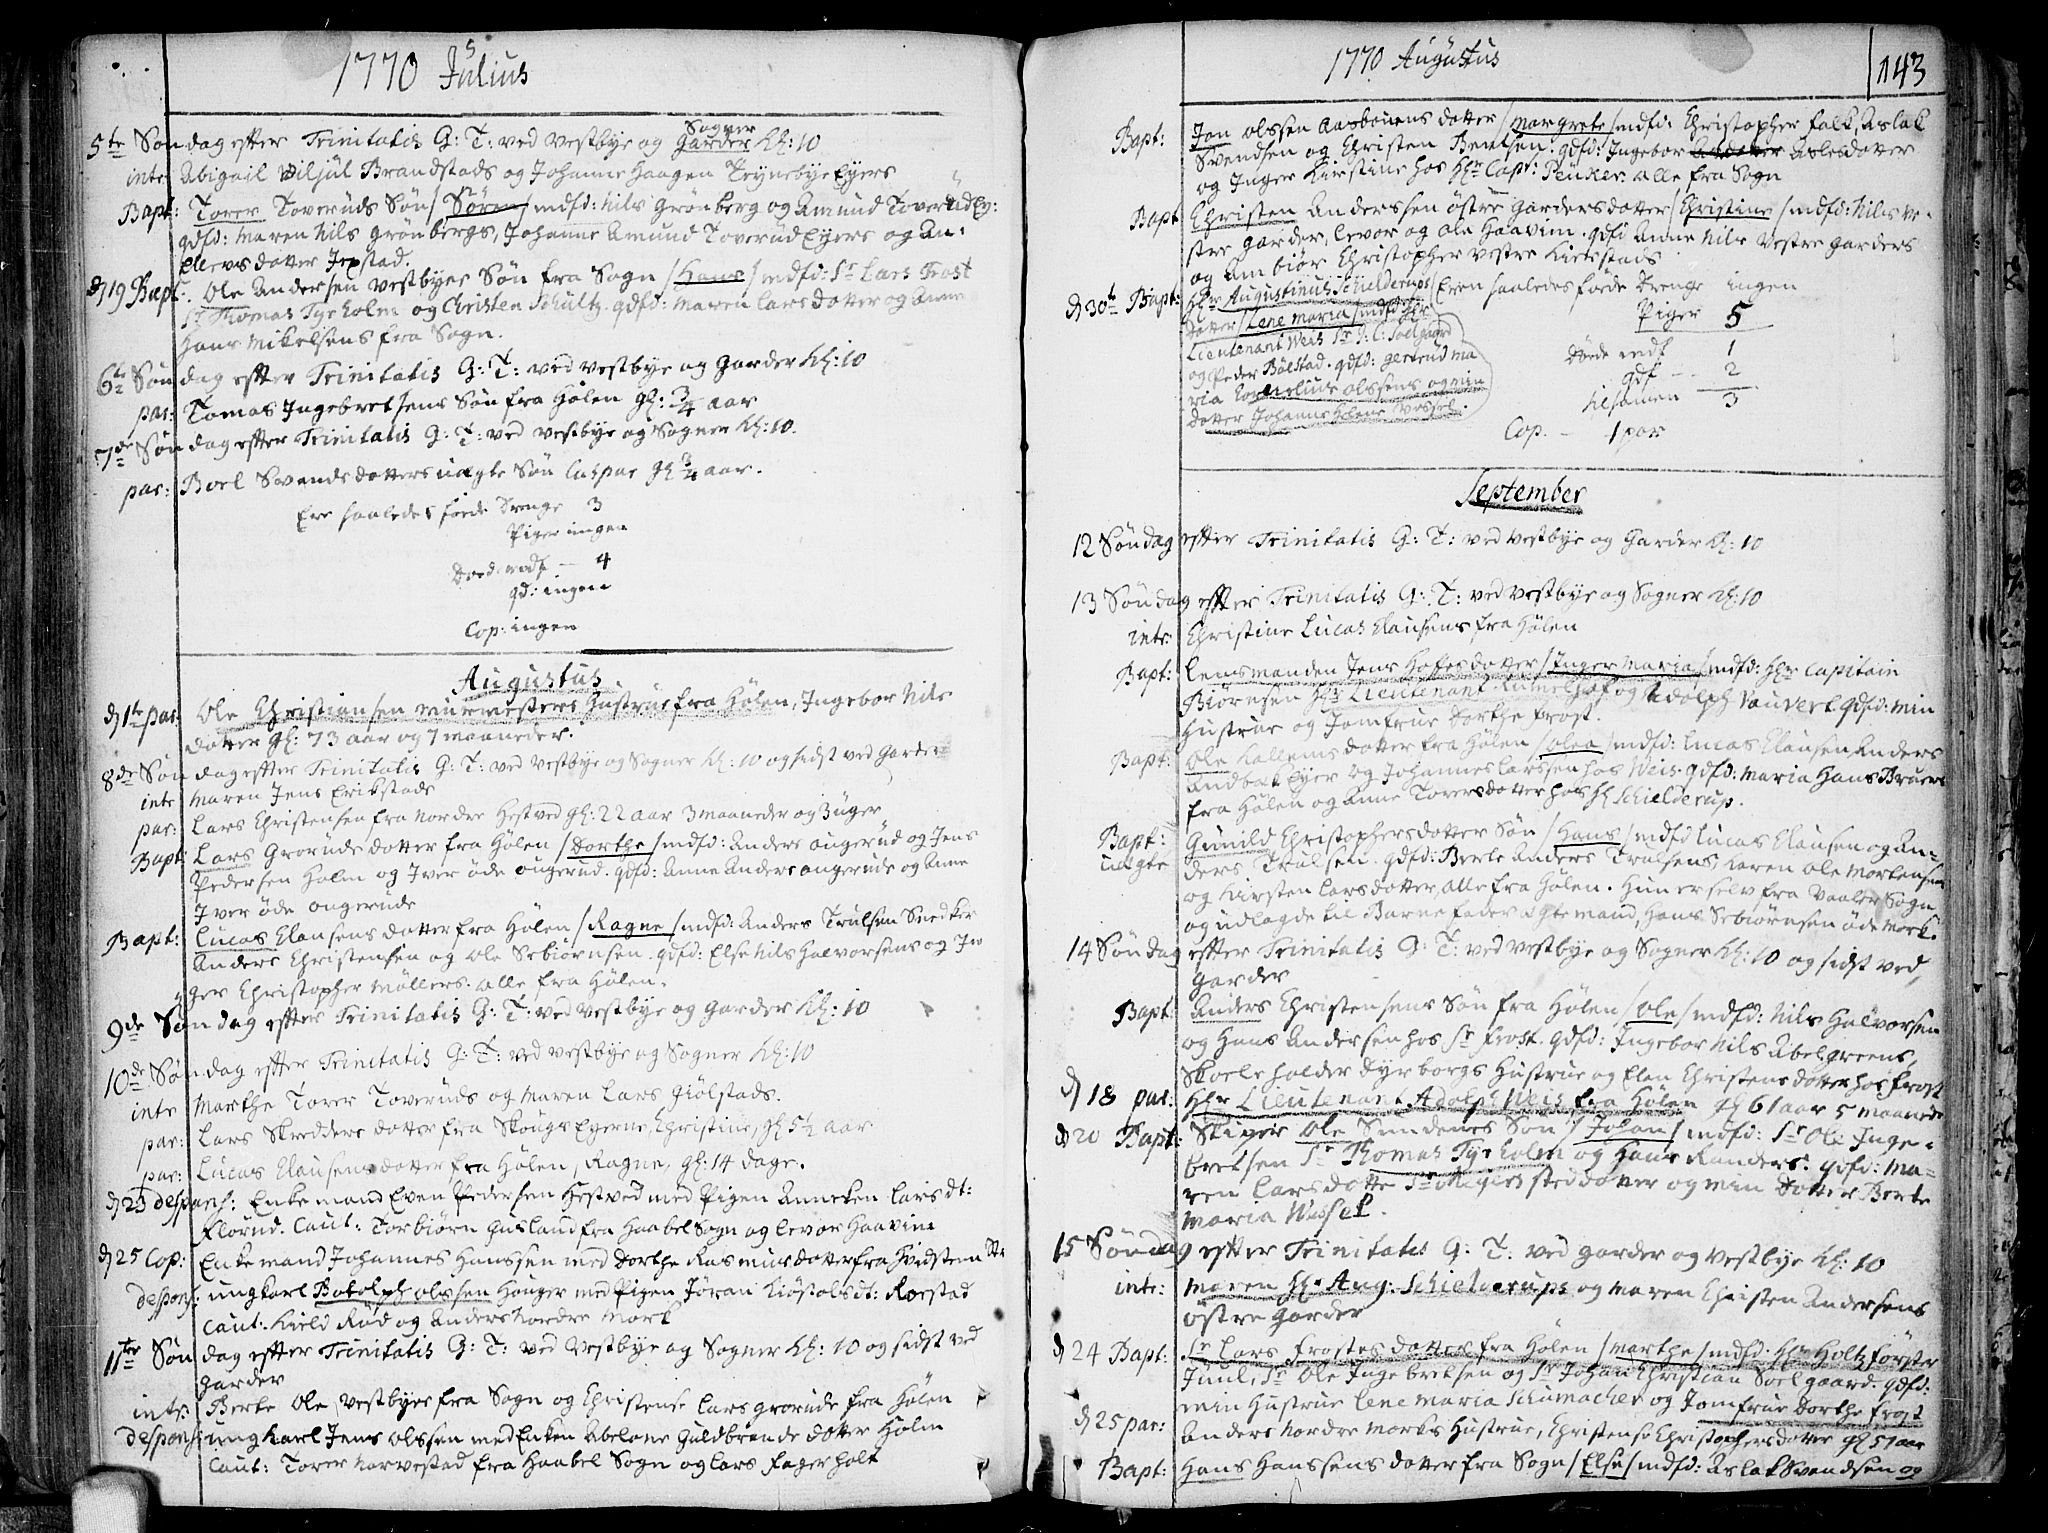 1770 Julius
5te Søndag effter Trinitatis G: T: ved Vestbye og Garder Kl: 10
Sogner
intr: Abigail Brandstads og Johanne Haagen Teynebye Eyers
Bapt: Torer Toveruds Søn / Søren / mdfd: Nils Grønberg og Amund Toverud Ey:
qdfd: Maren Nils Grønbergs, Johanne Amund Toverud Eyers og An-
Elevsdatter Jepstad.
d 19 Bapt: Ole Andersen Vestbyes Søn fra Sogn / Hans / mdfd: Sr Lars Frost
Sr Thomas Tyrholm og Christen Schultz. qdfd: Maren Larsdatter og Anne
Hans Mikelsens fra Sogn.
6te Søndag effter Trinitatis G: T: ved Vestbye og Garder Kl: 10
par: Tomas Ingebretsens Søn fra Hølen gl: 3/4 aar
7de Søndag effter Trinitatis G: T: ved Vestbye og Sogner Kl: 10.
par: Boel Svendsdatters uægte Søn Caspar gl 3/4 aar.
Ere saaledes føede Drenge 3
Piger ingen
Døed: mdf — 4
qd: ingen
Cop: ingen
Augustus
d 1te par: Ole Christiansen Muurmesters Hustrue fra Hølen, Ingebor Nils
datter gl: 73 aar og 7 maaneder.
8de Søndag effter Trinitatis G: T: ved Vestbye og Sogner Kl: 10 og sidst ved Garder
intr Maren Jens Erikstads
par: Lars Christensen fra Nordre Hestved gl: 22 aar 3 maaneder og 3 uger
Bapt: Lars Groruds datter fra Hølen / Dorthe / mdfd: Anders Ougerud og Jens
Pedersen Holm og Iver øde Ougerud. qdfd: Anne Anders Ougeruds og Anne
Iver øde Ongeruds
Bapt: Lucas Clausens datter fra Hølen / Ragne / mdfd: Anders Trulsen Snedker
Anders Christensen og Ole Sebiørnsen. qdfd: Else Nils Halvorsens og In
ger Christopher Møllers. alle fra Hølen.
9de Søndag effter Trinitatis G: T: ved Vestbye og Garder Kl: 10
10de Søndag effter Trinitatis G: T: ved Vestbye og Sogner Kl: 10
intr Marthe Torer Toveruds og Maren Lars Giølstads.
par: Lars Skredders datter fra Skougs Eyerne, Christine, gl 5 1/2 aar
par: Lucas Clausens datter fra Hølen, Ragne, gl: 14 dage.
d 23 despons: Enkemand Even Pedersen Hestved med Pigen Anneken Lars dt:
Florud. Caut: Torbiørn Gusland fra Haabel Sogn og Levor Haavim
d 25 Cop: Enkemand Johannes Hanssen med Dorthe Rasmusdatter fra Hvidsten
despons: ungkarl Botolph Olssen Houger med Pigen Jøran Kiøstols dt: Roestad
Caut: Kield Rød og Anders Nordre Mork
11te Søndag effter Trinitatis G: T: ved Vestbye og Sogner Kl: 10 og sidst ved
Garder
intr: Berte Ole Vestbyes fra Sogn og Christense Lars Groruds fra Hølen
despons: ungkarl Jens Olssen med Enken Abelone Guldbrands datter Holm
Caut: Torer Narvestad fra Haabel Sogn og Lars Fagerholt
1770 Augustus
143
Bapt: Jon Olssen Aasbonens datter / Margrete / mdfd: Christopher Falk, Aslak
Svendsen og Christen Bentsen. qdfd: Ingebor Aslesdatter
og Inger Kirstine hos Hr Capt: Penker. alle fra Sogn
Bapt Christen Anderssen østre Garders datter / Christine / mdfd: Nils Ve-
stre Garder, Levor og Ole Haavim. qdfd Anne Nils Vestre Garders
og Anbiør Christopher Vestre Kirkstads
d 30te Bapt: Hr Augustinus Schielderups
datter / Lene Maria / mdfd Hr
Lieutenant Weis Sr J: C: Solgaard
og Peder Bølstad. qdfd: Gertrud Ma
ria Cornelius Olssens og min
datter Johanne Helene Wessel.
Eren saaledes føede Drenge ingen
Piger 5
Døede mdf 1
qdf — 2
tilsamen 3
Cop. — 1 par
September
12 Søndag effter Trinitatis G: T: ved Vestbye og Garder Kl: 10
13 Søndag effter Trinitatis G: T: ved Vestbye og Sogner Kl: 10
intr: Christine Lucas Clausens fra Hølen
Bapt: Lensmanden Jens Hofes datter / Inger Maria / mdfd: Hr Capitain
Biørnsen Hr Lieutenant Rumelhof og Adolph Vauvert qdfd: min
Hustrue og Jomfrue Dorthe Frost.
Bapt: Ole Kallems datter fra Hølen / Olea / mdfd: Lucas Clausen, Anders
Eyer og Johannes Larssen hos Weis. qdfd: Maria Hans Bruers
fra Hølen og Anne Torersdatter hos Hr Schielderup.
Bapt: uægte Gunild Christophersdatter Søn / Hans / mdfd Lucas Clausen og An-
ders Trulsen. qdfd: Berte Anders Trulsens, Karen Ole Mortensen
og Kirsten Larsdatter, alle fra Hølen. Hun er selv fra Vaaler Sogn
og udlagde til Barnefader ægtemand, Hans Sebiørnsen øde Mork.
14 Søndag effter Trinitatis G: T: ved Vestbye og Sogner Kl: 10 og sidst ved
Garder
Bapt: Anders Christensens Søn fra Hølen / Ole / mdfd: Nils Halvorsen
og Hans Andersen hos Sr Frost. qdfd: Ingebor Nils Abelgreens,
Skoeleholder Dyrborgs Hustrue og Elen Christensdatter hos Frost
d 18 par: Hr Lieutenant Adolph Weis fra Hølen gl 61 aar 5 maaneder
d 20 Bapt: Skiper Ole Sundenes Søn / Johan / mdfd: Sr Ole Inge-
bretsen Sr Thomas Tyrholm og Hans Randers. qdfd: Ma-
ren Larsdatte Sr steddatter og min Datter Berte
Maria Wessel.
15 Søndag effter Trinitatis G: T: ved Garder og Vestbye Kl: 10
intr: Maren Hr Aug: Schielderups og Maren Christen Andersens
østre Garder
d 24 Bapt: Sr Lars Frostes datter fra Hølen / Marthe / mdfd: Hr Holtzførster
Juul, Sr Ole Ingebretsen og Sr Johan Christian Soelgaard. qdfd:
min Hustrue Lene Maria Schumacher og Jomfrue Dorthe Frost
d 25 par: Anders Nordre Morks Hustrue, Christense Christophersdatter gl 51 aar
Bapt: Hans Hanssens datter fra Sogn / Else / mdfd: Aslak Svendsen og